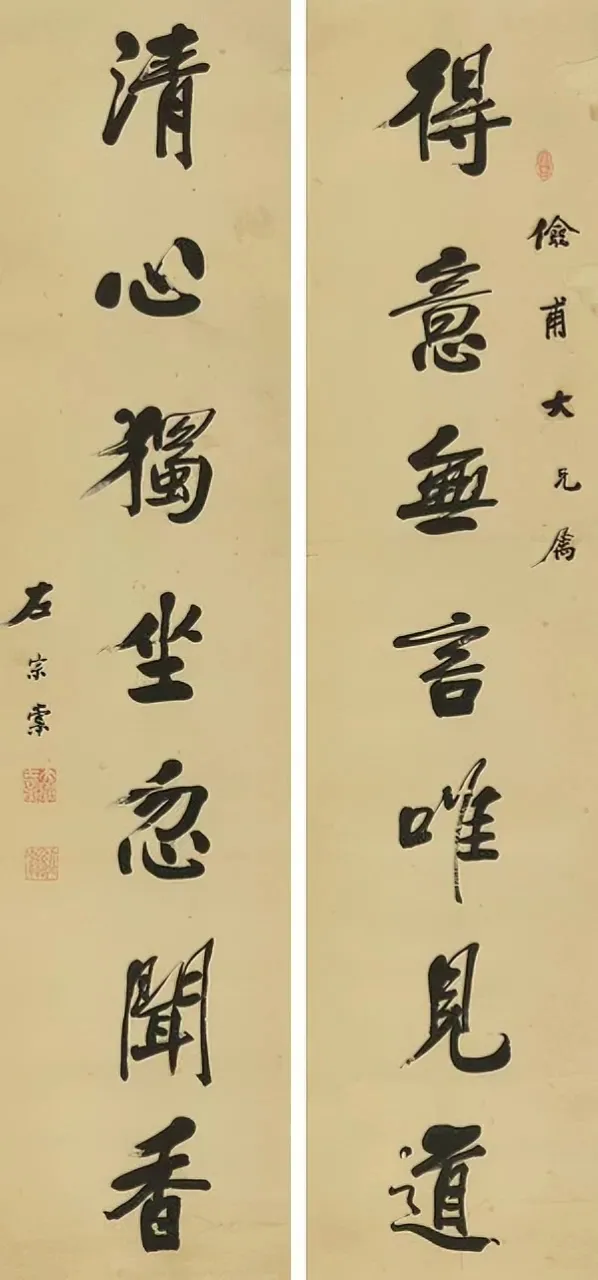 儉甫大兄属
得意無言唯見道
清心獨坐忽聞香
左宗棠